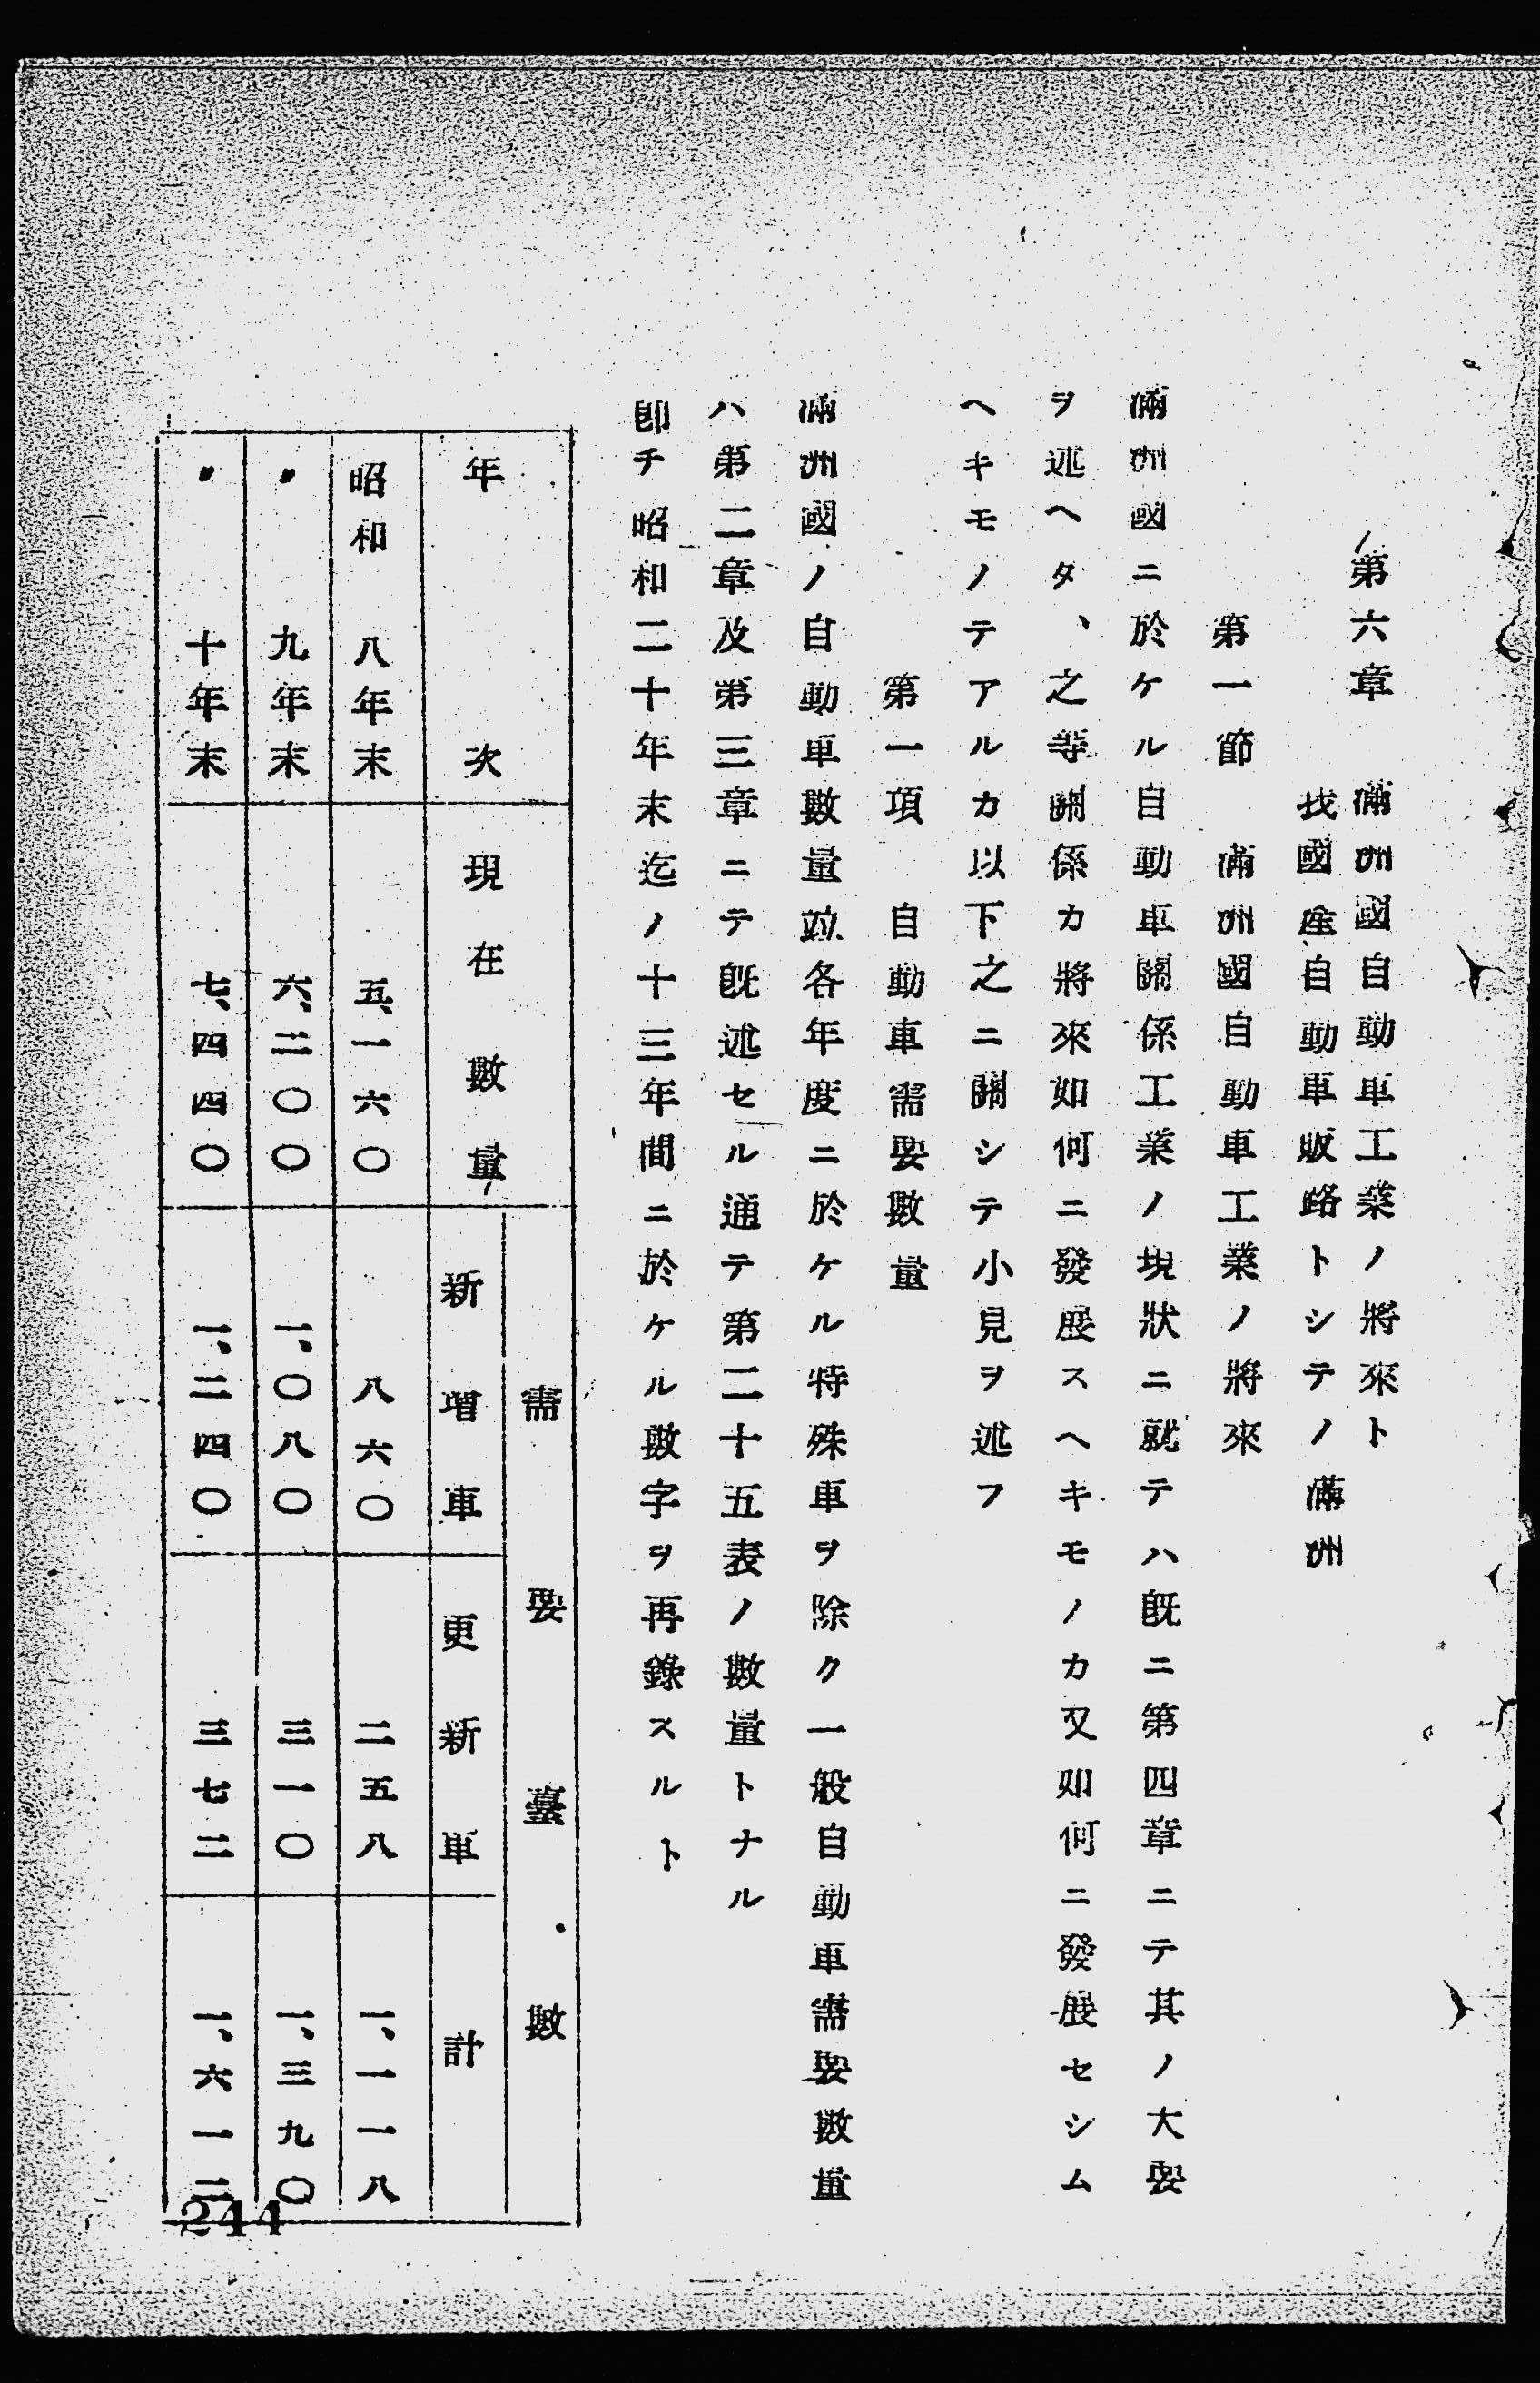 第六章　滿洲國自動車工業ノ將來ト
我國產自動車販路トシテノ滿洲
第一節　滿洲國自動車工業ノ將來
滿洲國ニ於ケル自動車關係工業ノ現狀ニ就テハ既ニ第四章ニテ其ノ大要
ヲ述ヘタ、之等關係カ將來如何ニ發展スヘキモノカ又如何ニ發展セシム
ヘキモノテアルカ以下之ニ關シテ小見ヲ述フ
第一項　自動車需要數量
滿洲國ノ自動車數量竝各年度ニ於ケル特殊車ヲ除ク一般自動車需要數量
ハ第二章及第三章ニテ既述セル通テ第二十五表ノ數量トナル
卽チ昭和二十年末迄ノ十三年間ニ於ケル數字ヲ再錄スルト
年次　現在數量　需要臺數
新增車　更新車　計
昭和八年末　五、一六〇　八六〇　二五八　一、一一八
〃九年末　六、二〇〇　一、〇八〇　三一〇　一、三九〇
〃十年末　七、四四〇　一、二四〇　三七二　一、六一二
244